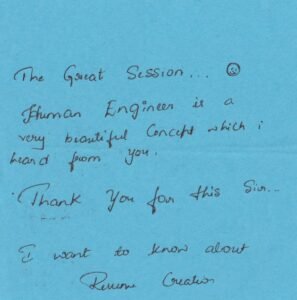 The Great Session... ☺
Human Engineer is a
very beautiful Concept which i
heard from you.
Thank You for this Sir...
I want to know about
Resume Creation